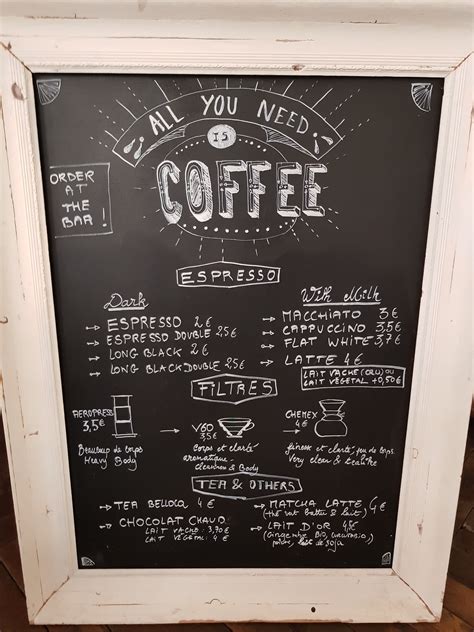 ALL YOU NEED
IS
COFFEE
ORDER
AT
THE
BAR!
ESPRESSO
Dark
→ ESPRESSO 2€
→ ESPRESSO DOUBLE 2,5€
→ LONG BLACK 2€
→ LONG BLACK DOUBLE 2,5€
With Milk
→ MACCHIATO 3€
→ CAPPUCCINO 3,5€
→ FLAT WHITE 3,7€
→ LATTE 4€
LAIT VACHE (CRU) OU
LAIT VEGETAL +0,50€
FILTRES
AEROPRESS
3,5€
Beaucoup de corps
Heavy Body
→ V60
3,5€
Corps et clarté
aromatique.
Clearness & Body
→ CHEMEX
4€
finesse et clarté, peu de corps.
Very clear &
TEA & OTHERS
→ TEA BELLOCQ 4€
→ CHOCOLAT CHAUD
LAIT VACHE: 3,70€
LAIT VÉGÉTAL: 4€
→ MATCHA LATTE 4€
(thé vert battu & lait)
→ LAIT D'OR 4,5€
(Gingembre BIO, curcuma BIO
poivre, lait de soja